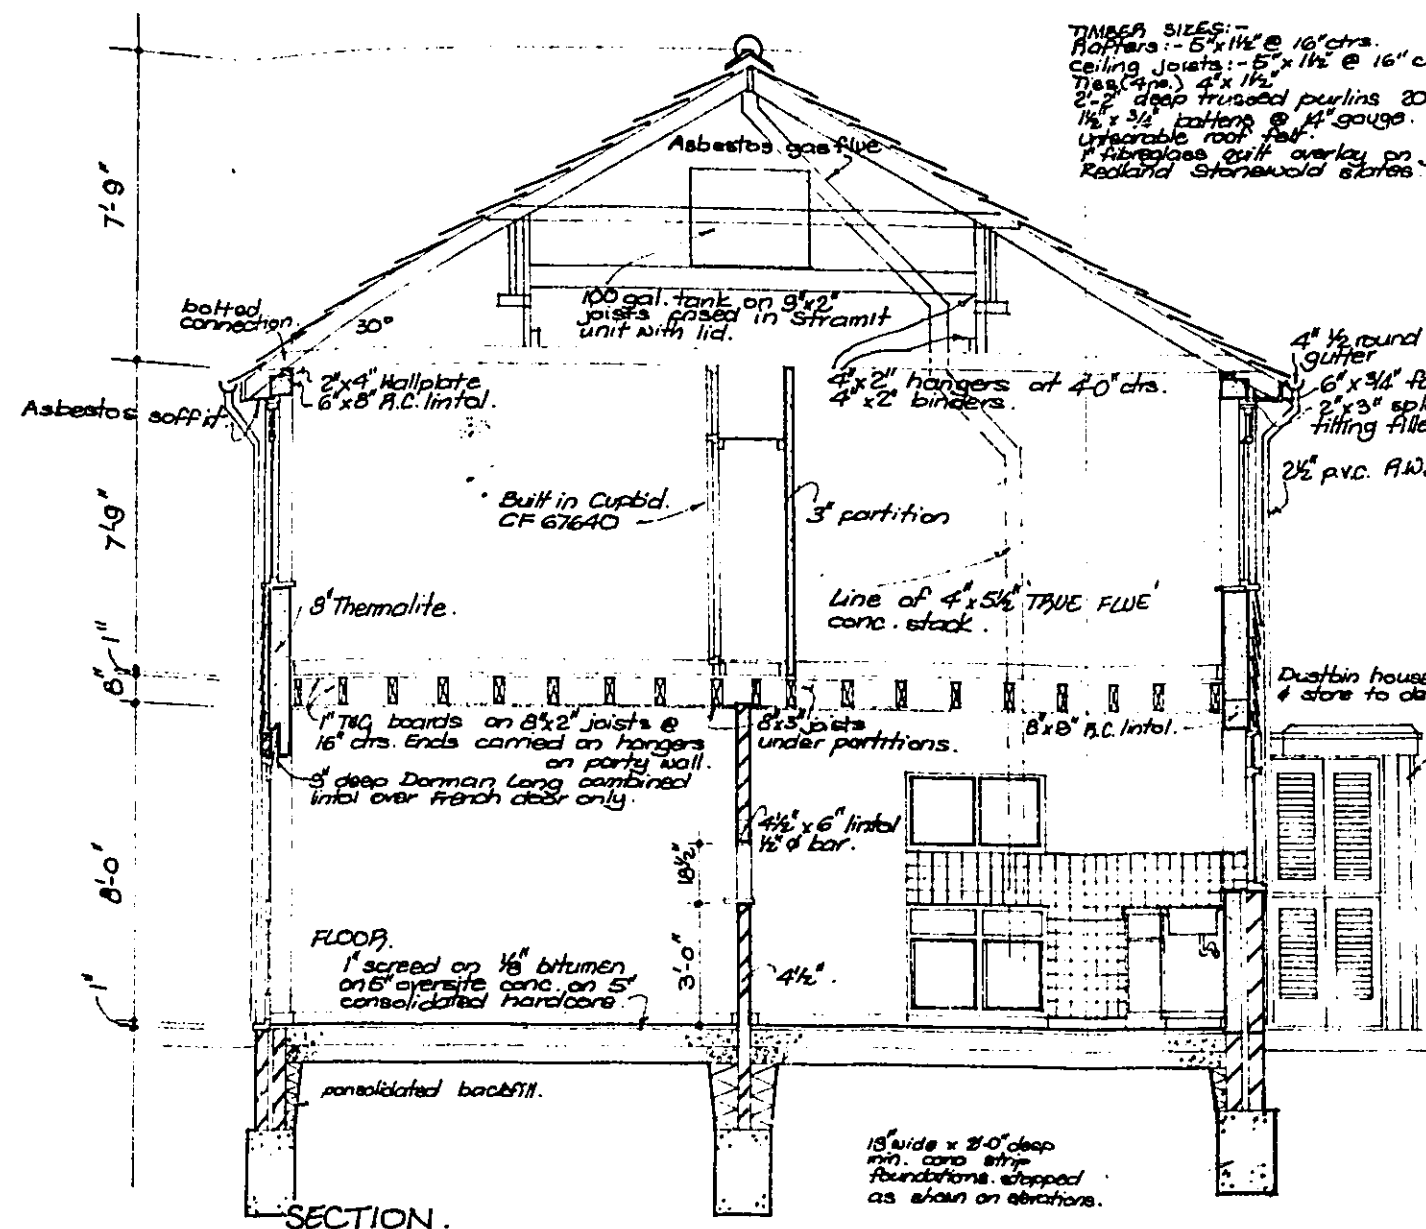 TIMBER SIZES:-
Rafters:- 5"x1½" @ 16"ctrs.
Ceiling joists:- 5"x1½" @ 16" c
Ties (4no.) 4"x1½"
2'-2" deep trussed purlins 20
1½"x¾" battens @ 14" gauge.
Untearable roof felt.
1" fibreglass quilt overlay on
Redland Stonewold slates
7'-9"
Asbestos gas flue
100 gal. tank on 9"x2"
joists cased in Stramit
unit with lid.
bolted
connection.
30°
2"x4" Wallplate
6"x8" R.C. lintol.
Asbestos soffit
4"x2" hangers at 4'-0" ctrs.
4"x2" binders.
4" ½ round
gutter
6"x¾" fa
2"x3" spl
tilting fille
2½" p.v.c. R.W.
7'-9"
Built in Cupbd.
CF 67640
3" partition
8" Thermalite.
Line of 4"x5½" 'TRUE FLUE'
conc. stack.
1"
8"
Dustbin house
& store to
1" T&G boards on 8"x2" joists @
16" ctrs. Ends carried on hangers
on party wall.
8"x3" joists
under partitions.
8"x8" R.C. lintol.
9" deep Dorman Long combined
lintol over French door only.
4½" x 6" lintol
½" ø bar.
18½"
8'-0"
FLOOR.
1" screed on ⅛" bitumen
on 6" oversite conc. on 5"
consolidated hardcore.
3'-0"
4½".
1"
consolidated backfill.
18" wide x 2'-0" deep
min. conc strip
foundations. stepped
as shown on elevations.
SECTION.